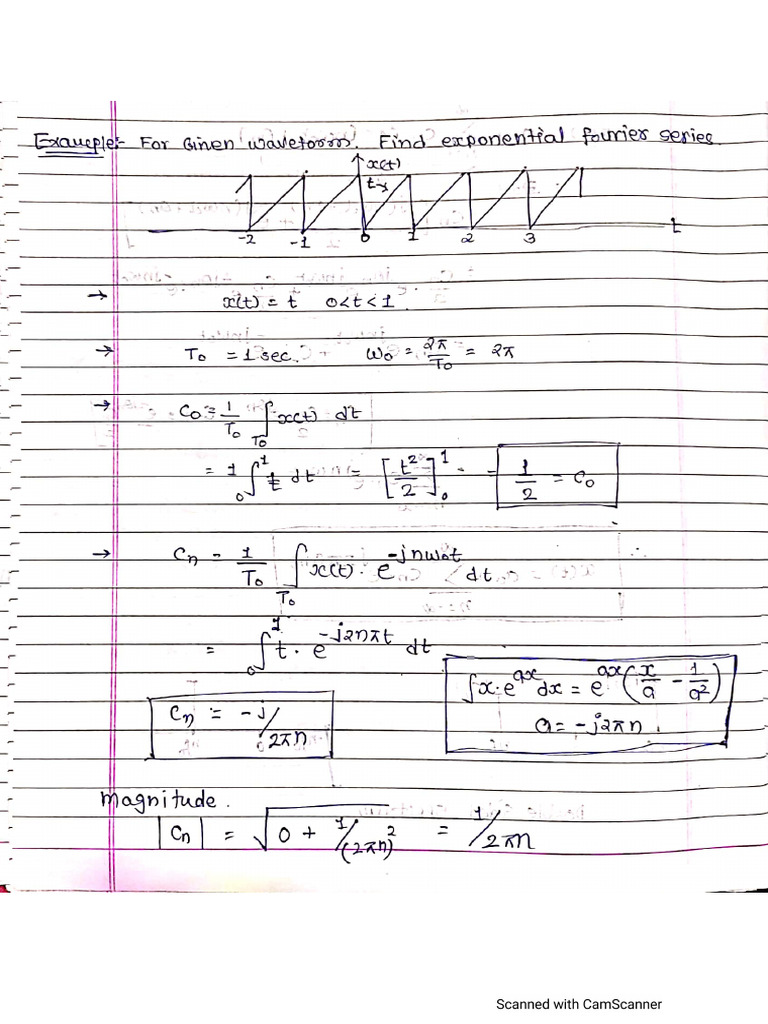 Example:- For Given waveform. Find exponential fourier series.
x(t)
t→
-2 -1 0 1 2 3 t
→ x(t) = t 0<t<1
→ T₀ = 1 sec. ω₀ = 2π/T₀ = 2π
→ C₀ = 1/T₀ ∫_T₀ x(t) dt
= 1 ∫₀¹ t dt = [t²/2]₀¹ = 1/2 = C₀
→ Cn = 1/T₀ ∫_T₀ x(t) · e^(-jnω₀t) dt
= ∫₀¹ t · e^(-j2nπt) dt
∫x·e^(ax) dx = e^(ax) (x/a - 1/a²)
a = -j2πn
Cn = -j/2πn
Magnitude.
|Cn| = √(0 + 1/(2πn)²) = 1/2πn
Scanned with CamScanner